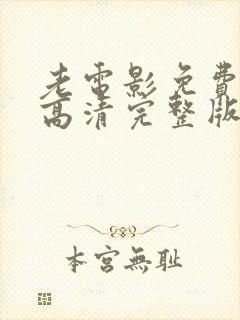 老電影免費
高清完整版
本宮無耻